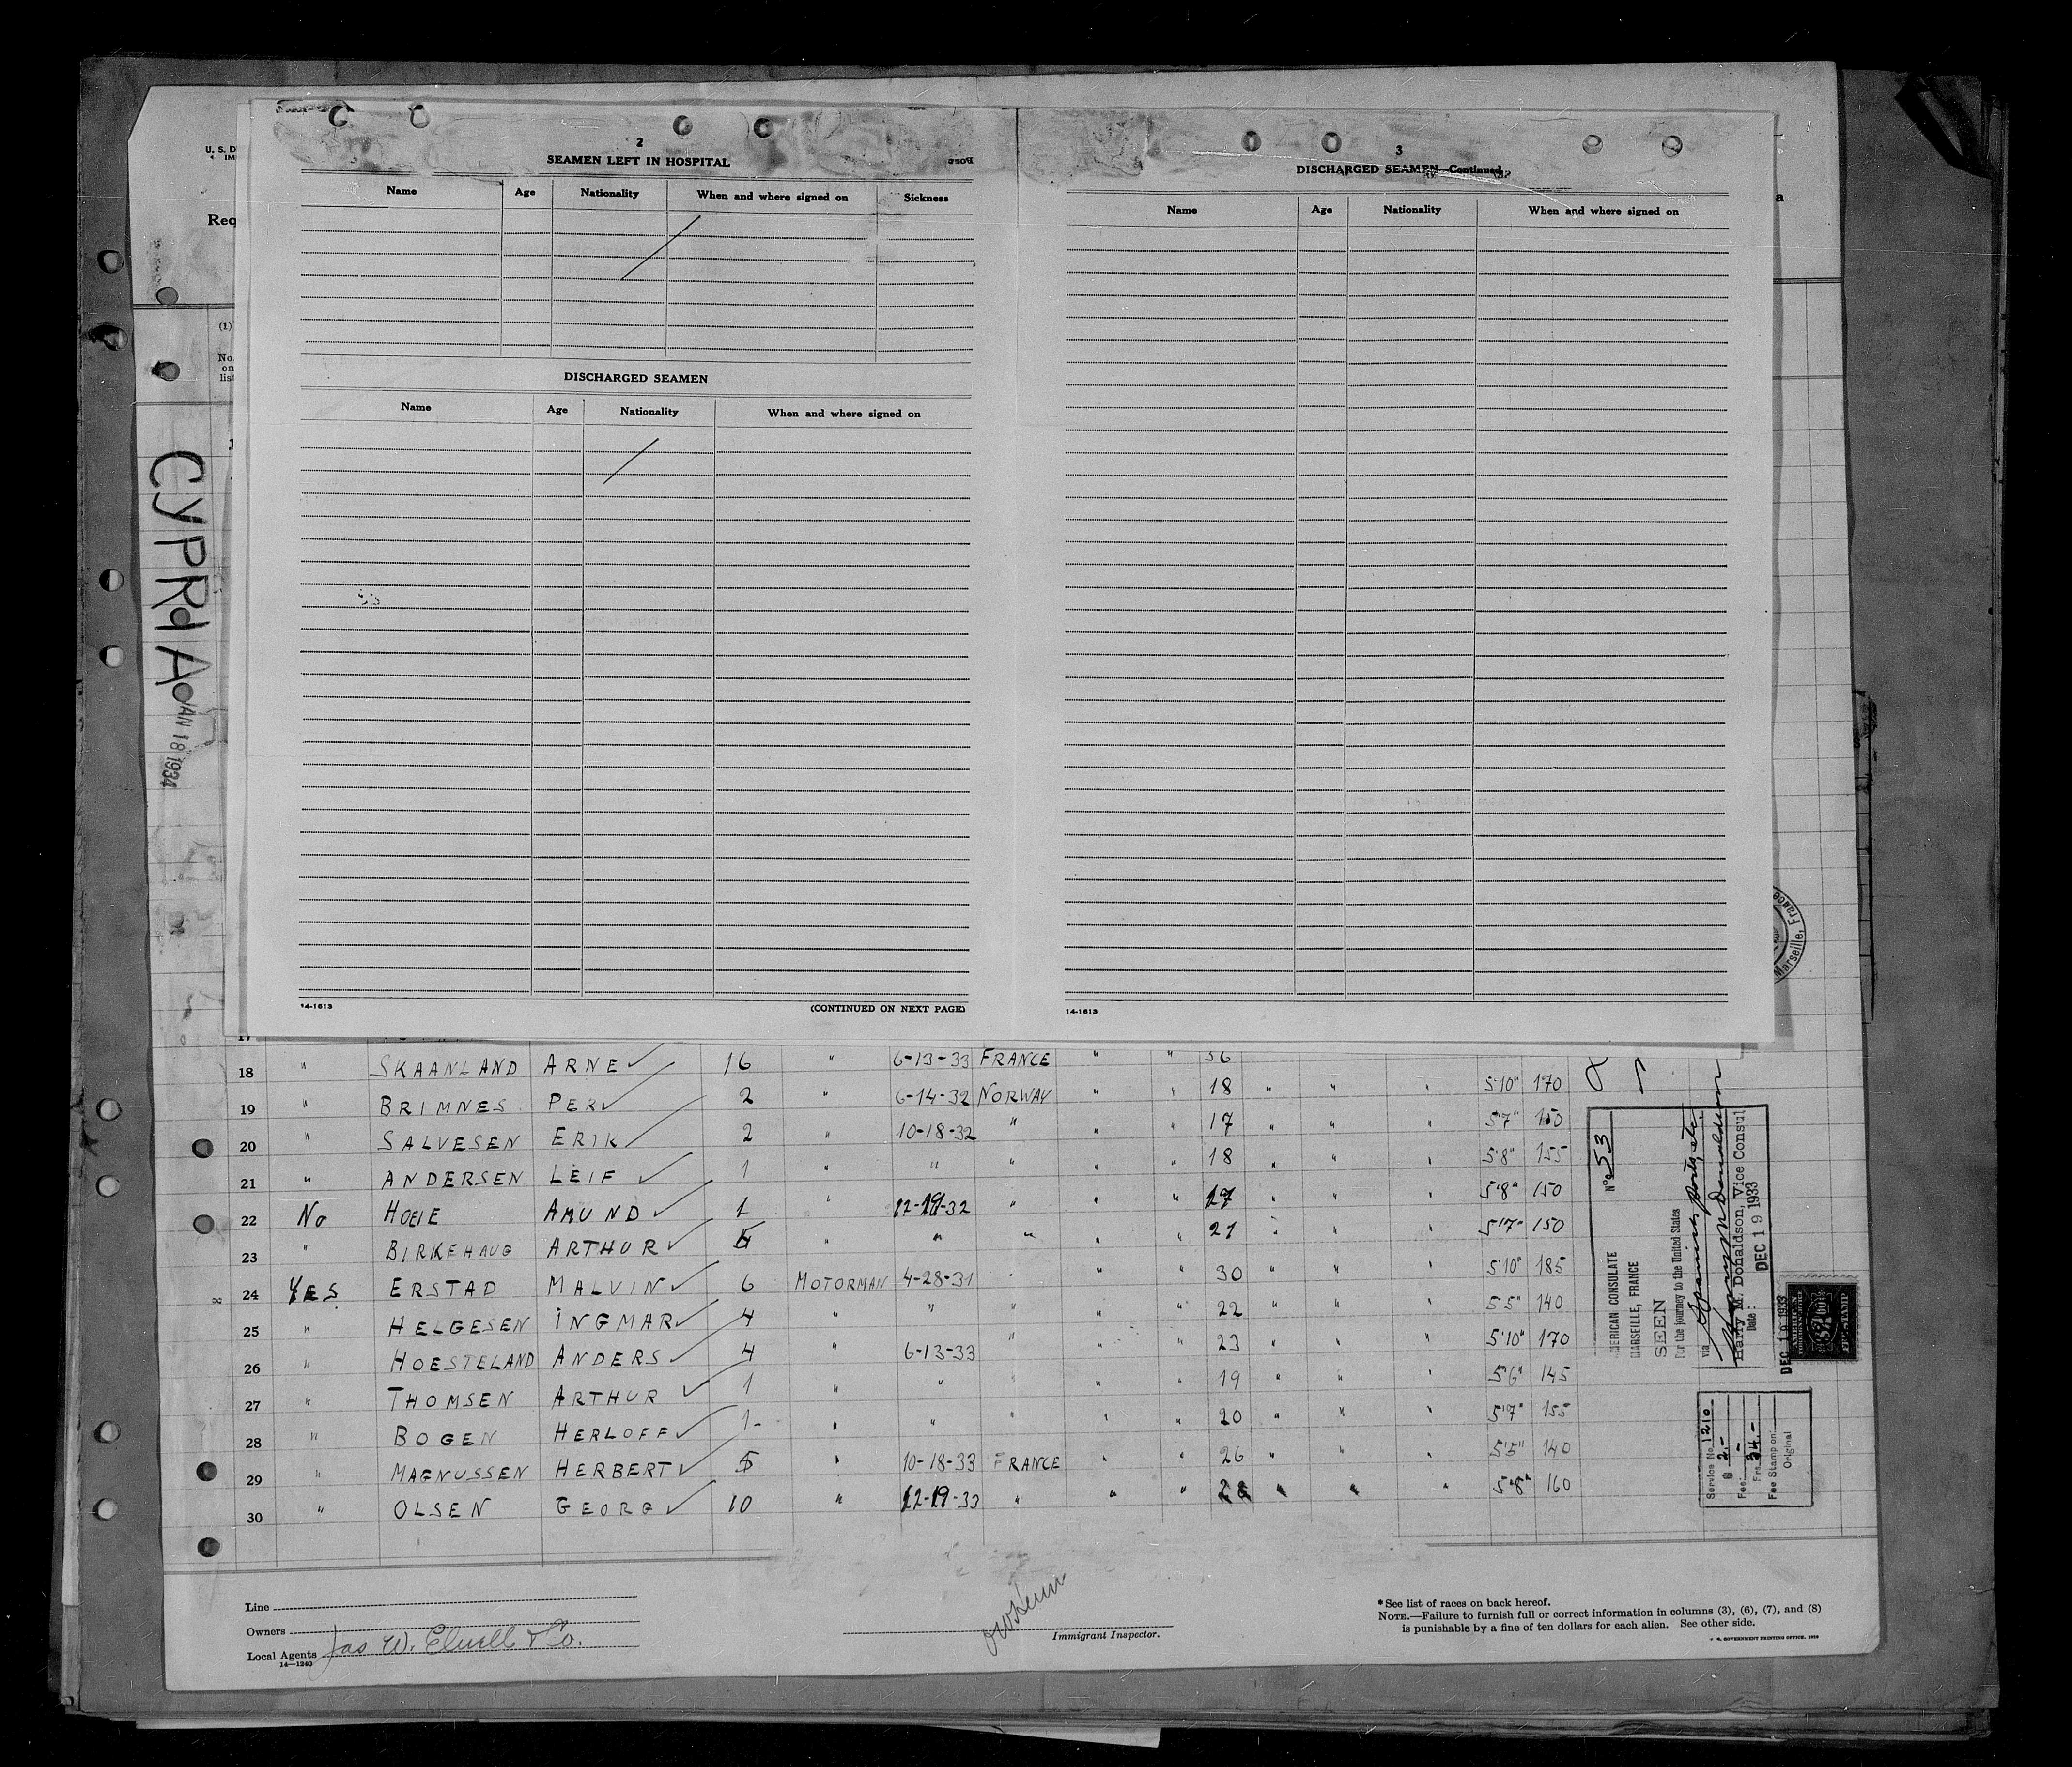 U. S. D
IM
Req
a
(1)
No.
on
list
CYPRIA
JAN 18 1934
2
SEAMEN LEFT IN HOSPITAL
Name Age Nationality When and where signed on Sickness
DISCHARGED SEAMEN
Name Age Nationality When and where signed on
14-1613 (CONTINUED ON NEXT PAGE)
3
DISCHARGED SEAMEN—Continued
Name Age Nationality When and where signed on
14-1613
Marseille, France
17
18 " SKAANLAND ARNE 16 " 6-13-33 FRANCE " " 36
19 " BRIMNES PER 2 " 6-14-32 NORWAY " " 18 " " " 5'10" 170
20 " SALVESEN ERIK 2 " 10-18-32 " " " 17 " " " 5'7" 150
21 " ANDERSEN LEIF 1 " " " " " 18 " " " 5'8" 155
22 No HOEIE AMUND 1 " 12-19-32 " " " 17 " " " 5'8" 150
23 " BIRKEHAUG ARTHUR " " " " " 21 " " " 5'7" 150
24 YES ERSTAD MALVIN 6 MOTORMAN 4-28-31 " " " 30 " " " 5'10" 185
25 " HELGESEN INGMAR 4 " " " " 22 " " " 5'5" 140
26 " HOESTELAND ANDERS 4 " 6-13-33 " " 23 " " " 5'10" 170
27 " THOMSEN ARTHUR 1 " " " " " 19 " " " 5'6" 145
28 " BOGEN HERLOFF 1 " " " " " 20 " " " 5'7" 155
29 " MAGNUSSEN HERBERT 5 " 10-18-33 FRANCE " " 26 " " " 5'5" 140
30 " OLSEN GEORG 10 " 12-19-33 " " " 28 " " " 5'8" 160
No 53
AMERICAN CONSULATE
MARSEILLE, FRANCE
SEEN
For the journey to the United States
via Spanish ports, etc.
Harry M. Donaldson
Harry M. Donaldson, Vice Consul
Date: DEC 19 1933
DEC 19 1933
AMERICAN
FEE STAMP
Service No. 1210
$ 2.-
Fee: -
Frs. 34.-
Fee Stamp on
Original
Line
Owners
Local Agents Jas W. Elwell & Co.
14—1240
Immigrant Inspector.
* See list of races on back hereof.
NOTE.—Failure to furnish full or correct information in columns (3), (6), (7), and (8)
is punishable by a fine of ten dollars for each alien. See other side.
U. S. GOVERNMENT PRINTING OFFICE